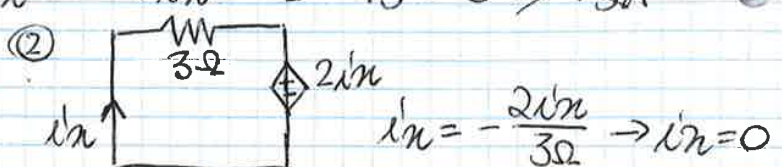 ②
3Ω
2ix
ix
ix = - 2ix / 3Ω → ix = 0